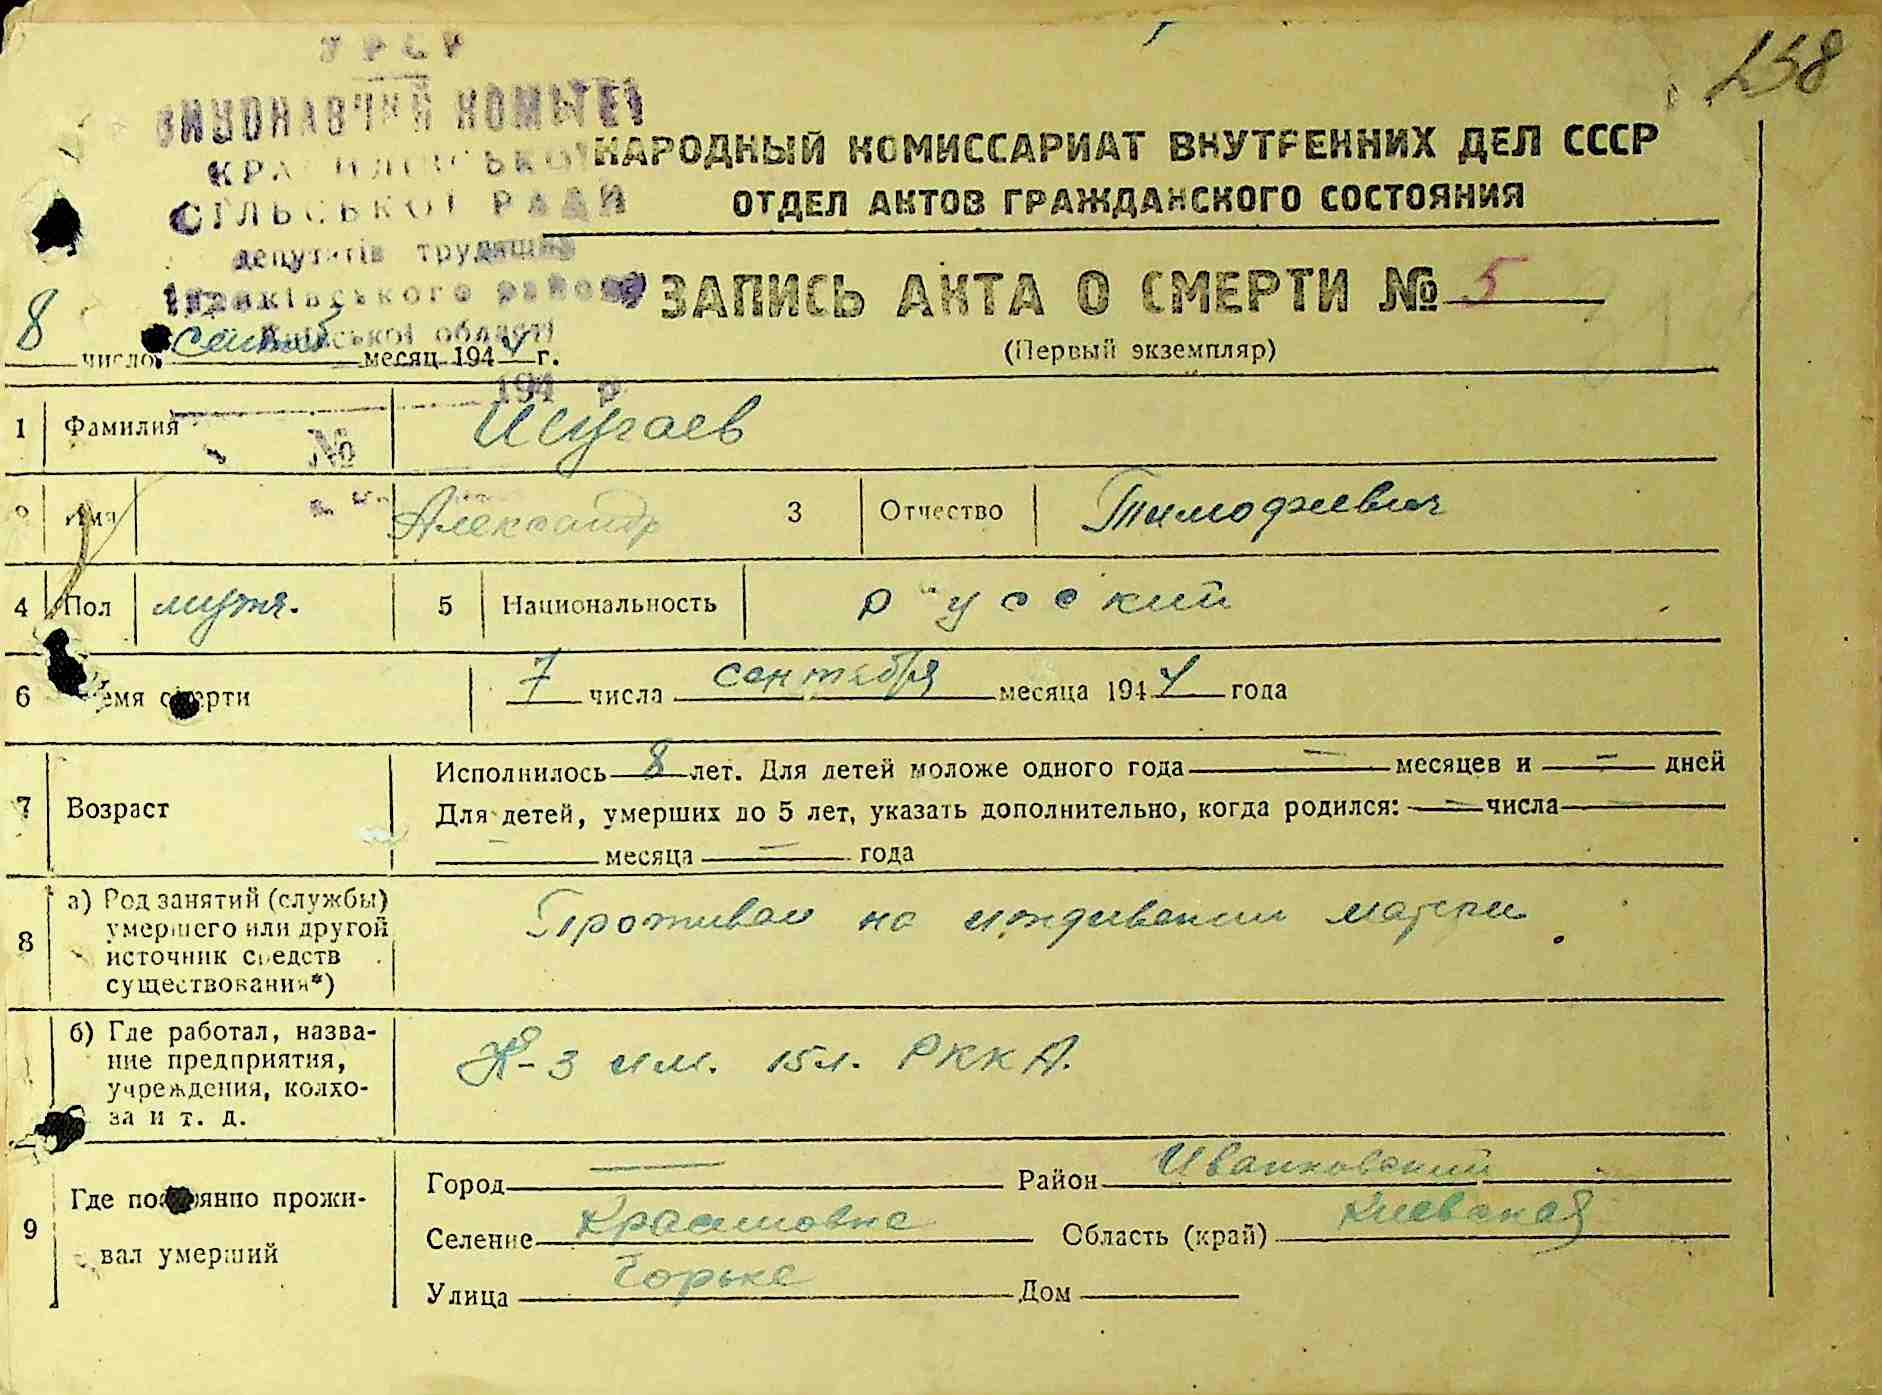 258
УРСР
ВИКОНАВЧИЙ КОМІТЕТ
СІЛЬСЬКОЇ РАДИ
депутатів трудящих
Іванківського району
Київської області
194 р.
№
НАРОДНЫЙ КОМИССАРИАТ ВНУТРЕННИХ ДЕЛ СССР
ОТДЕЛ АКТОВ ГРАЖДАНСКОГО СОСТОЯНИЯ
ЗАПИСЬ АКТА О СМЕРТИ № 5
(Первый экземпляр)
8 число месяц 1944 г.
1 Фамилия
2 Имя Александр 3 Отчество Тимофиевич
4 Пол мужч. 5 Национальность русский
6 Время смерти 7 числа сентября месяца 1944 года
7 Возраст Исполнилось 8 лет. Для детей моложе одного года — месяцев и — дней
Для детей, умерших до 5 лет, указать дополнительно, когда родился: — числа —
— месяца — года
8 а) Род занятий (службы) умершего или другой источник средств существования*) Проживал на иждивении матери.
б) Где работал, название предприятия, учреждения, колхоза и т. д. К-з им. 15л. РККА.
9 Где постоянно проживал умерший
Город — Район Иванковский
Селение Область (край) Киевская
Улица Дом